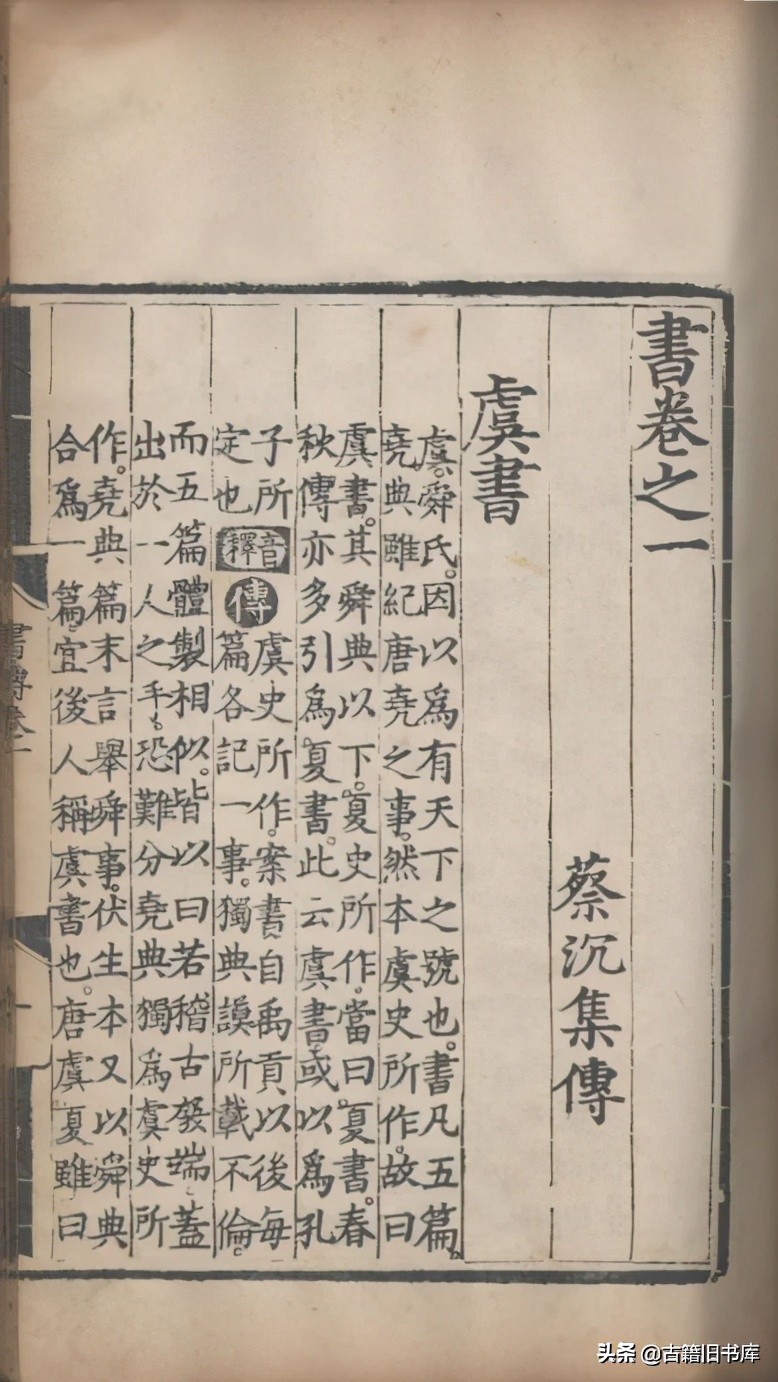 書卷之一
蔡沉集傳
虞書
虞舜氏因以爲有天下之號也書凡五篇
堯典雖紀唐堯之事然本虞史所作故曰
虞書其舜典以下夏史所作當曰夏書春
秋傳亦多引爲夏書此云虞書或以爲孔
子所
定也
音釋
傳
虞史所作案書自禹貢以後每
篇各記一事獨典謨所載不倫
而五篇體製相似皆以曰若稽古發端蓋
出於一人之手恐難分堯典獨爲虞史所
作堯典篇末言舉舜事伏生本又以舜典
合爲一篇宜後人稱虞書也唐虞夏雖曰
書傳卷一
头条 @古籍旧书库